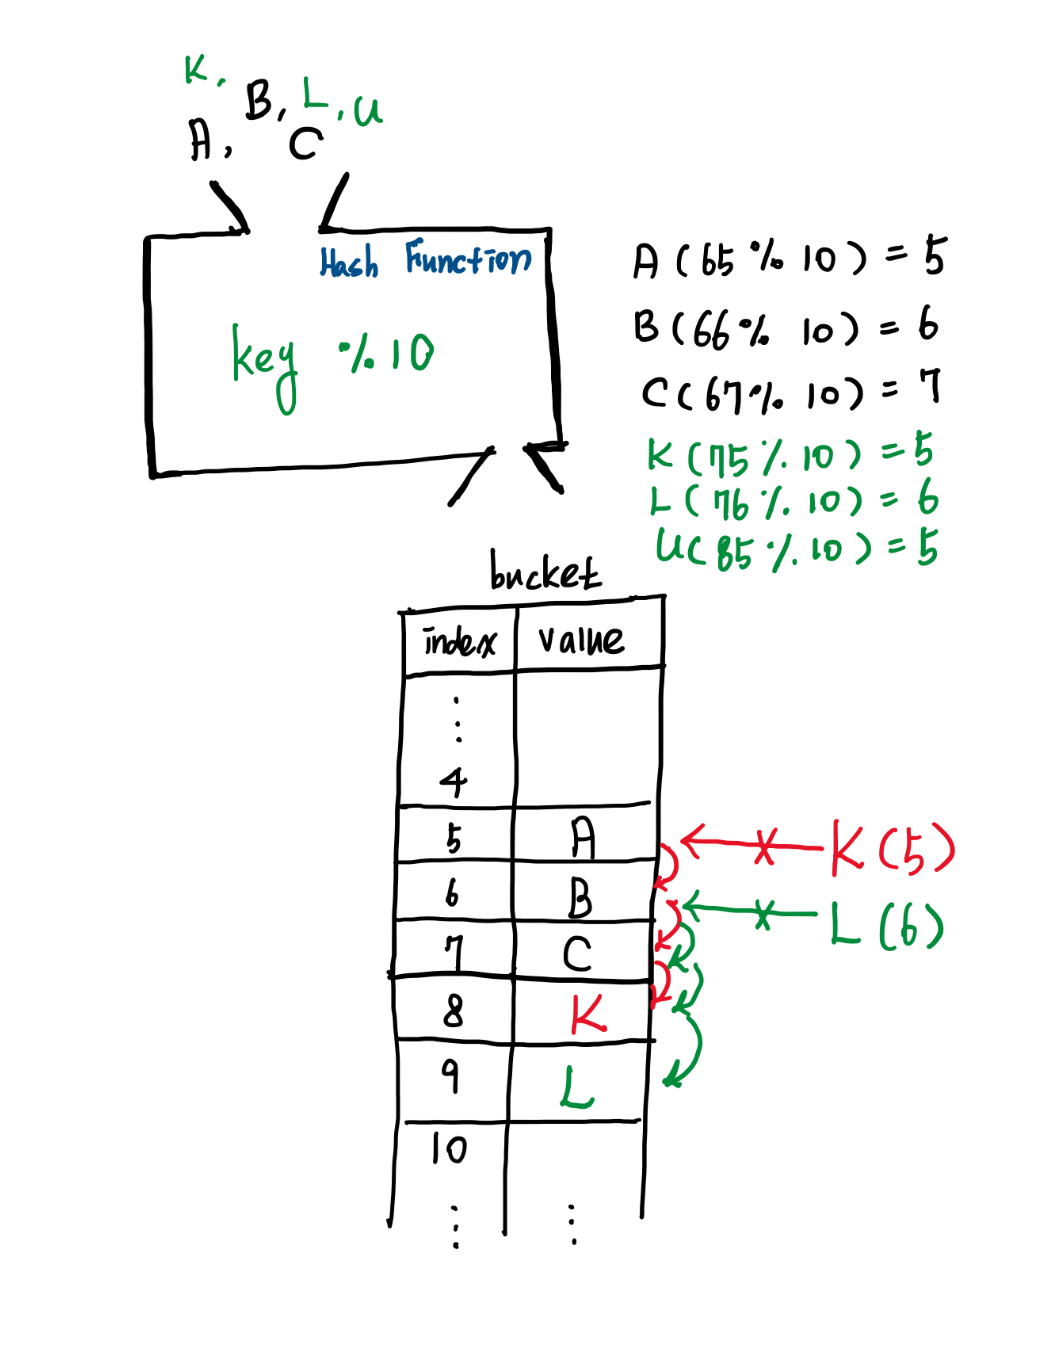 K,
B, L, U
A, C
Hash Function
key %10
A (65 % 10) = 5
B (66 % 10) = 6
C (67 % 10) = 7
K (75 % 10) = 5
L (76 % 10) = 6
U (85 % 10) = 5
bucket
index value
⋮
4
5 A
6 B
7 C
8 K
9 L
10
⋮ ⋮
K (5)
L (6)